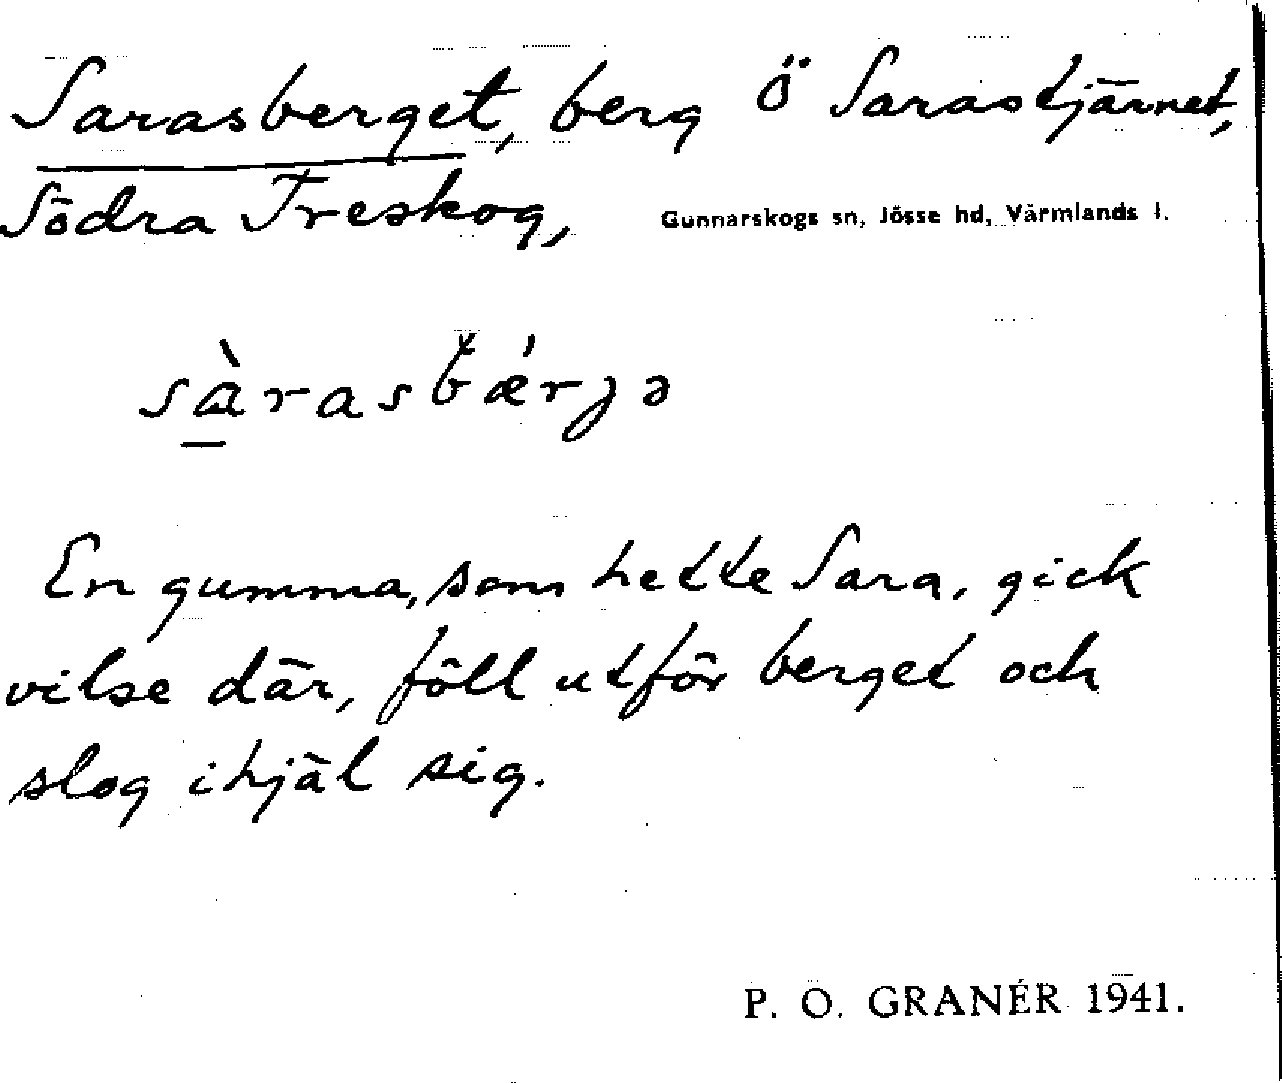 Sarasberget, berg Ö Sarastjärnet,
Södra Treskog, Gunnarskogs sn, Jösse hd, Värmlands l.
sàrasbǽrjə
En gumma, som hette Sara, gick
vilse där, föll utför berget och
slog ihjäl sig.
P. O. GRANÉR 1941.